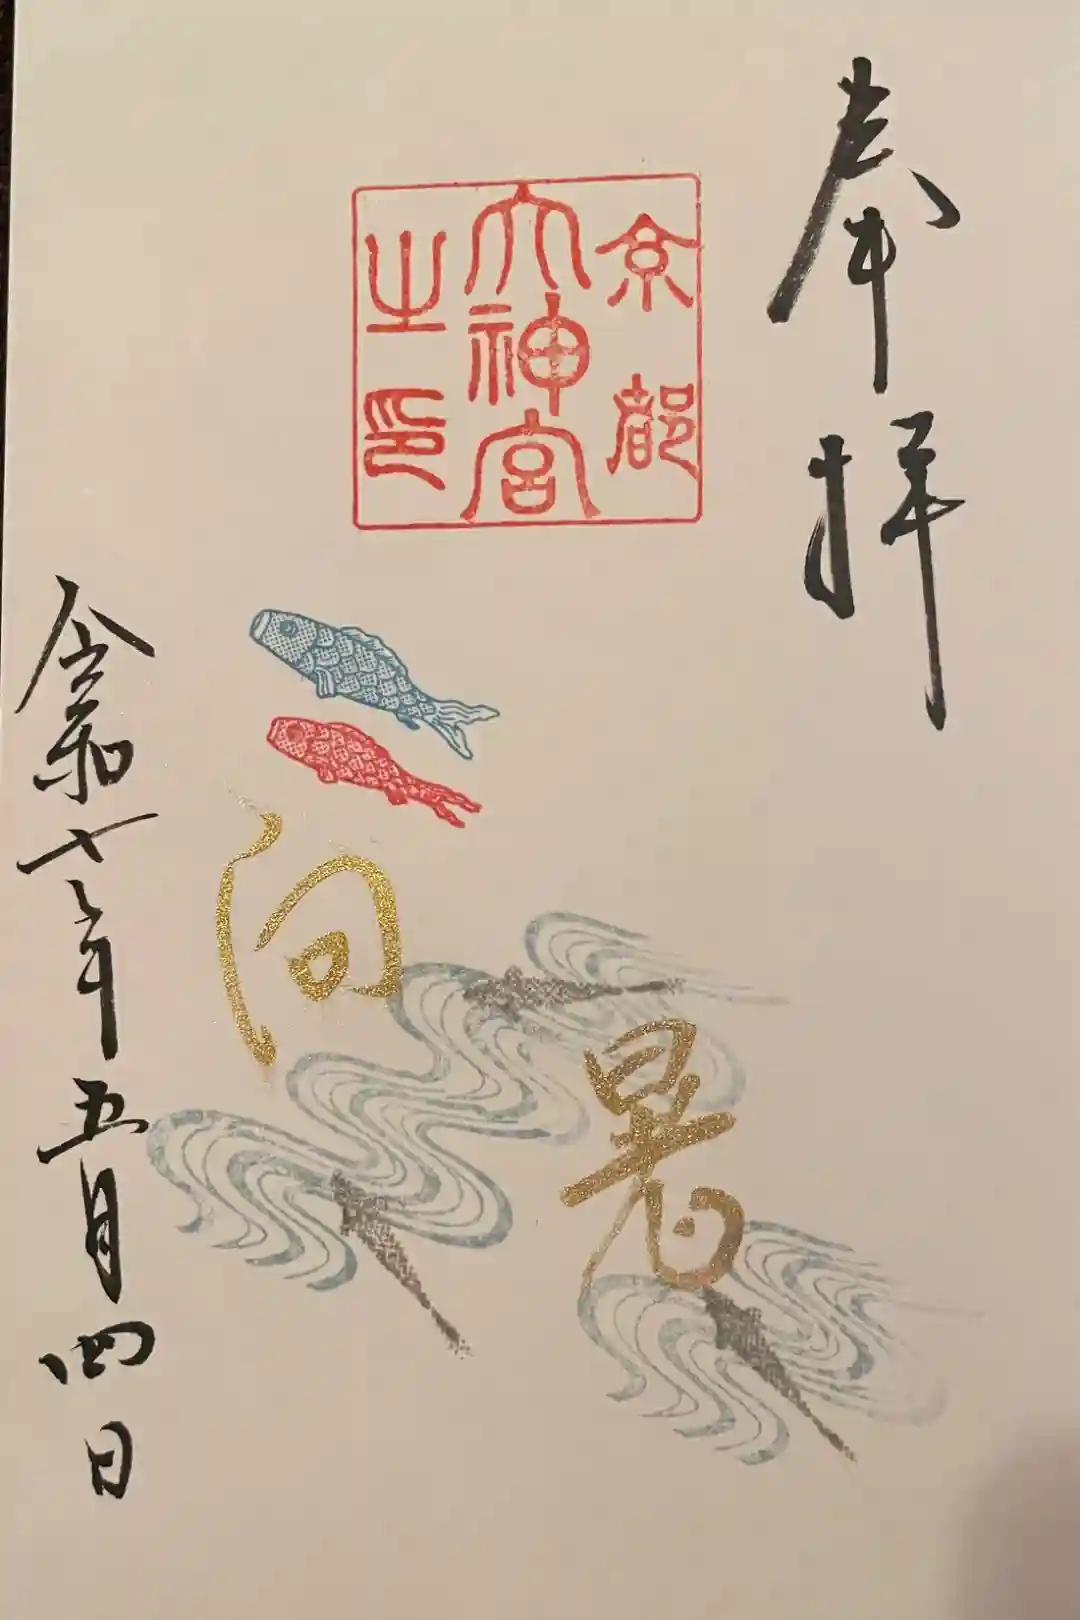 奉拝
京都
大神宮
之印
向暑
令和七年五月四日